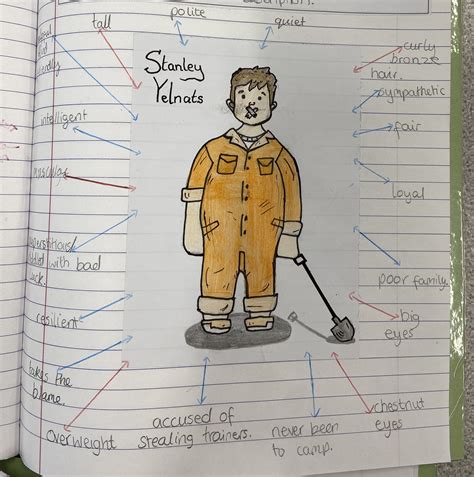 description.
polite
quiet
tall
Stanley
Yelnats
curly
bronze
hair.
sympathetic
intelligent
fair
loyal
with bad
luck.
poor family.
resilient
big
eyes
takes the
blame.
chestnut
eyes
accused of
stealing trainers.
never been
to camp.
Overweight